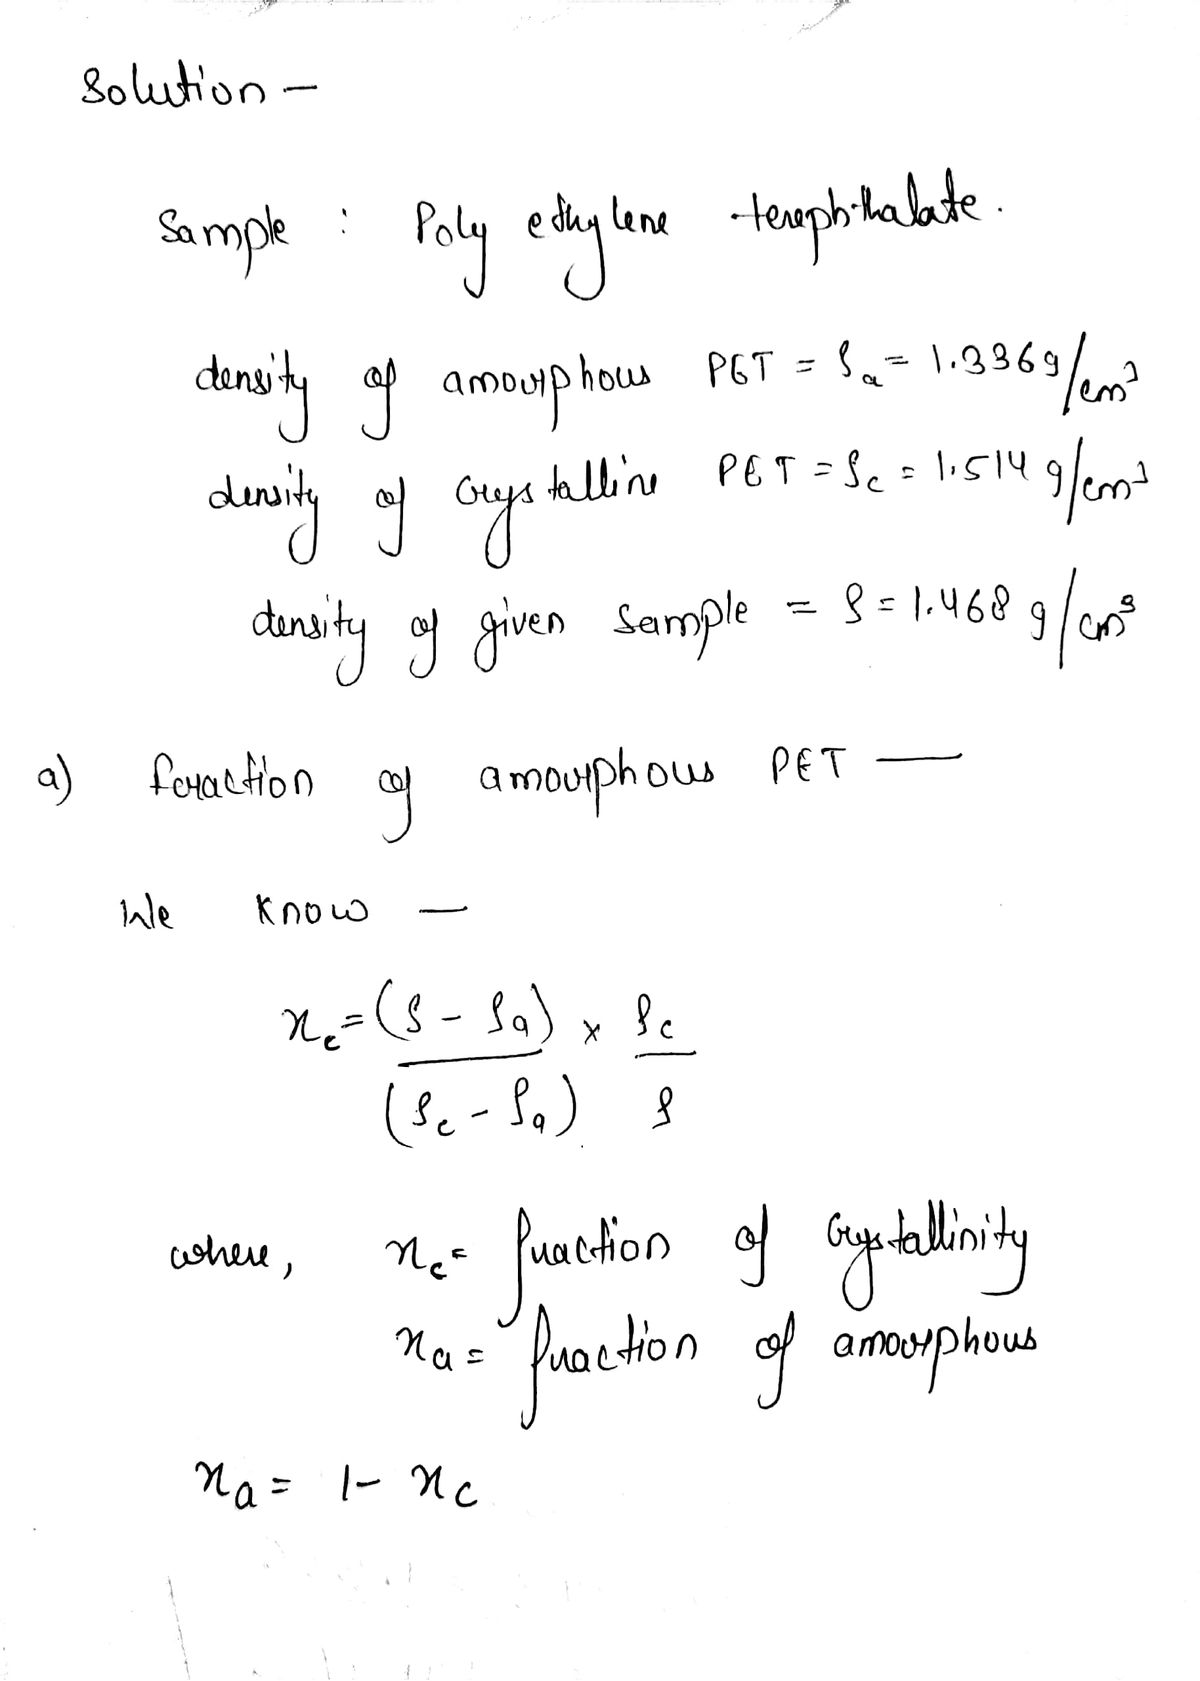 Solution —
Sample : Poly ethylene terephthalate.
density of amorphous PET = ρa = 1.336 g/cm³
density of crystalline PET = ρc = 1.514 g/cm³
density of given sample = ρ = 1.468 g/cm³
a) fraction of amorphous PET —
We know —
xc = (ρ - ρa) × ρc
(ρc - ρa) ρ
where, xc = fraction of crystallinity
xa = fraction of amorphous
xa = 1 - xc